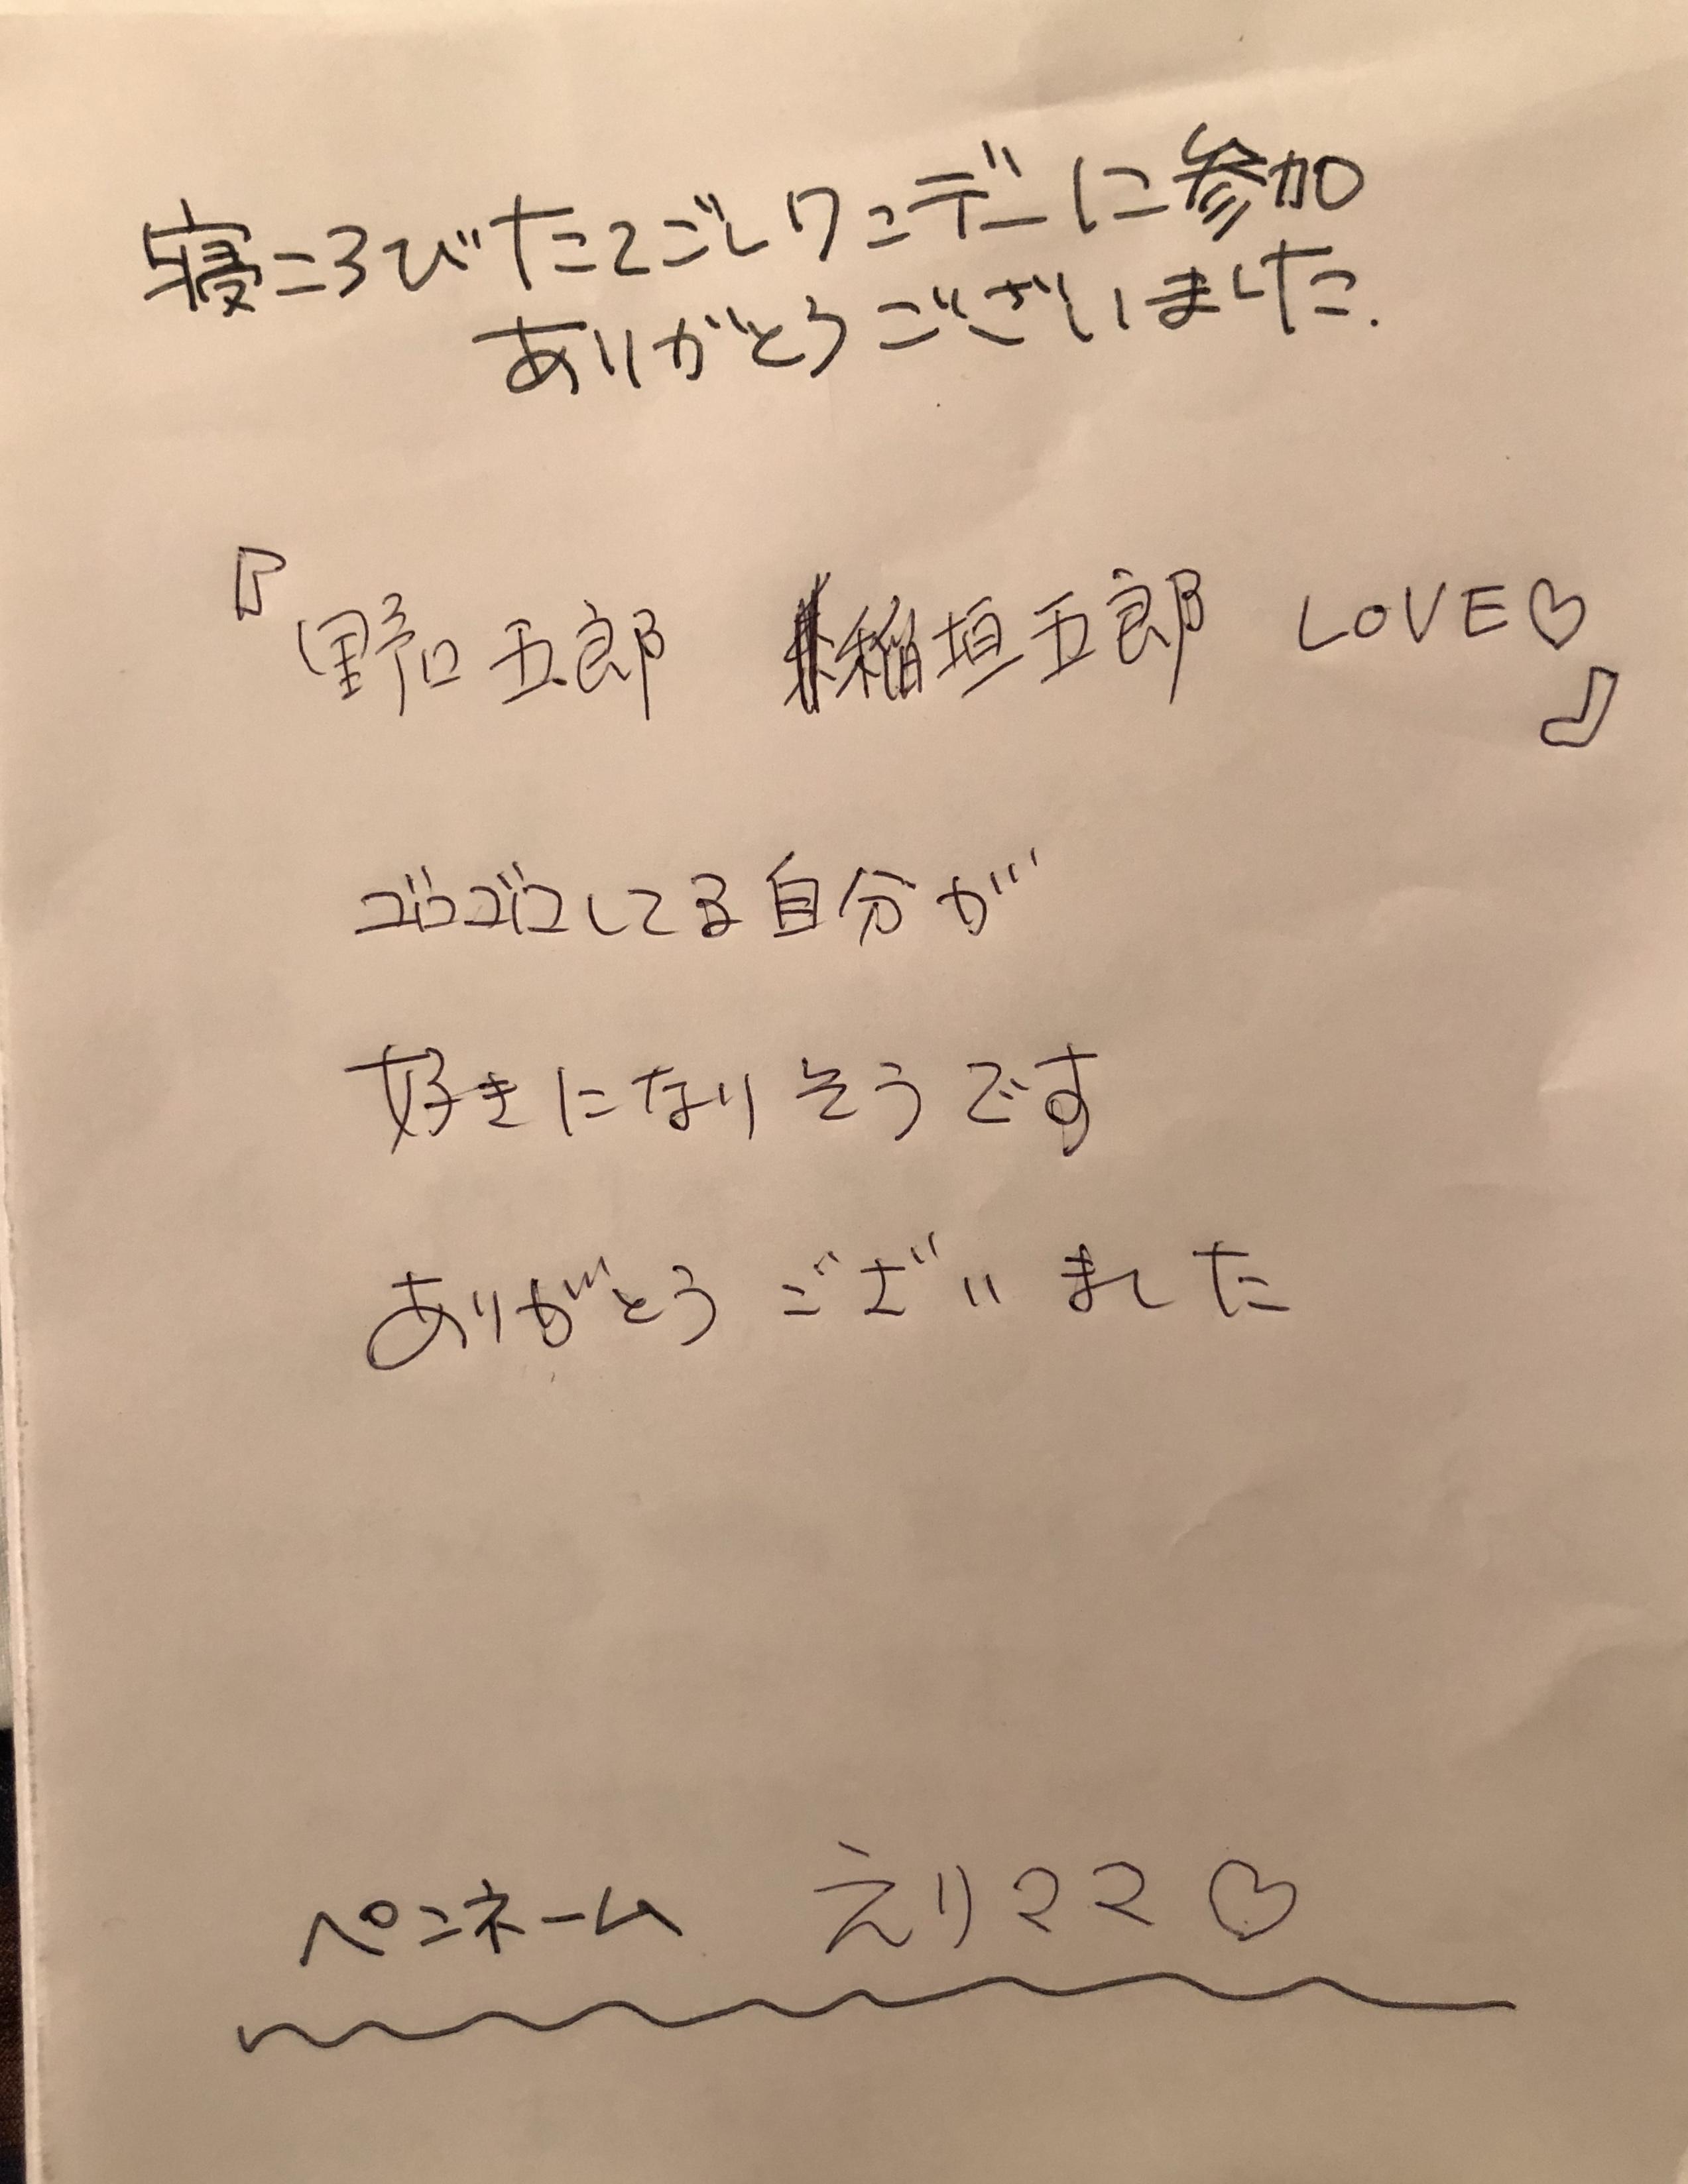 寝ころびたてごしワンデーに参加
ありがとうございました.
『野口五郎 稲垣五郎 LOVE♡』
ゴロゴロしてる自分が
好きになりそうです
ありがとうございました
ペンネーム えりママ♡